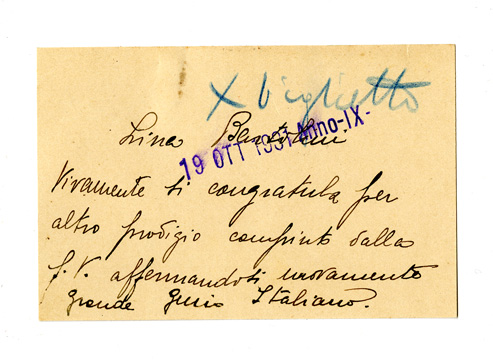 X biglietto
Lina
19 OTT 1931 Anno-IX-
Vivamente si congratula per
altro prodigio compiuto dalla
S. V. affermandosi nuovamente
grande genio Italiano.